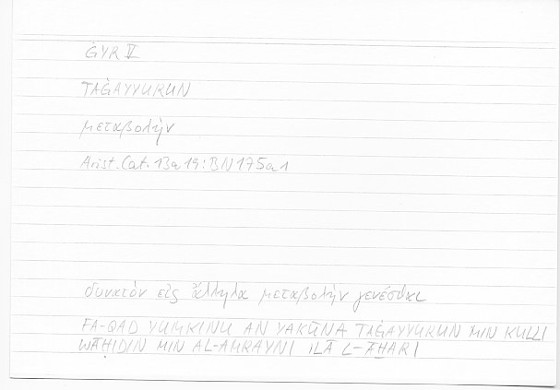 ĠYR V
TAĠAYYURUN
μεταβολὴν
Arist. Cat. 13a19 : BN 175a1
δυνατὸν εἰς ἄλληλα μεταβολὴν γενέσθαι
FA-QAD YUMKINU AN YAKŪNA TAĠAYYURUN MIN KULLI
WĀḤIDIN MIN AL-AMRAYNI ILĀ L-ĀḪARI